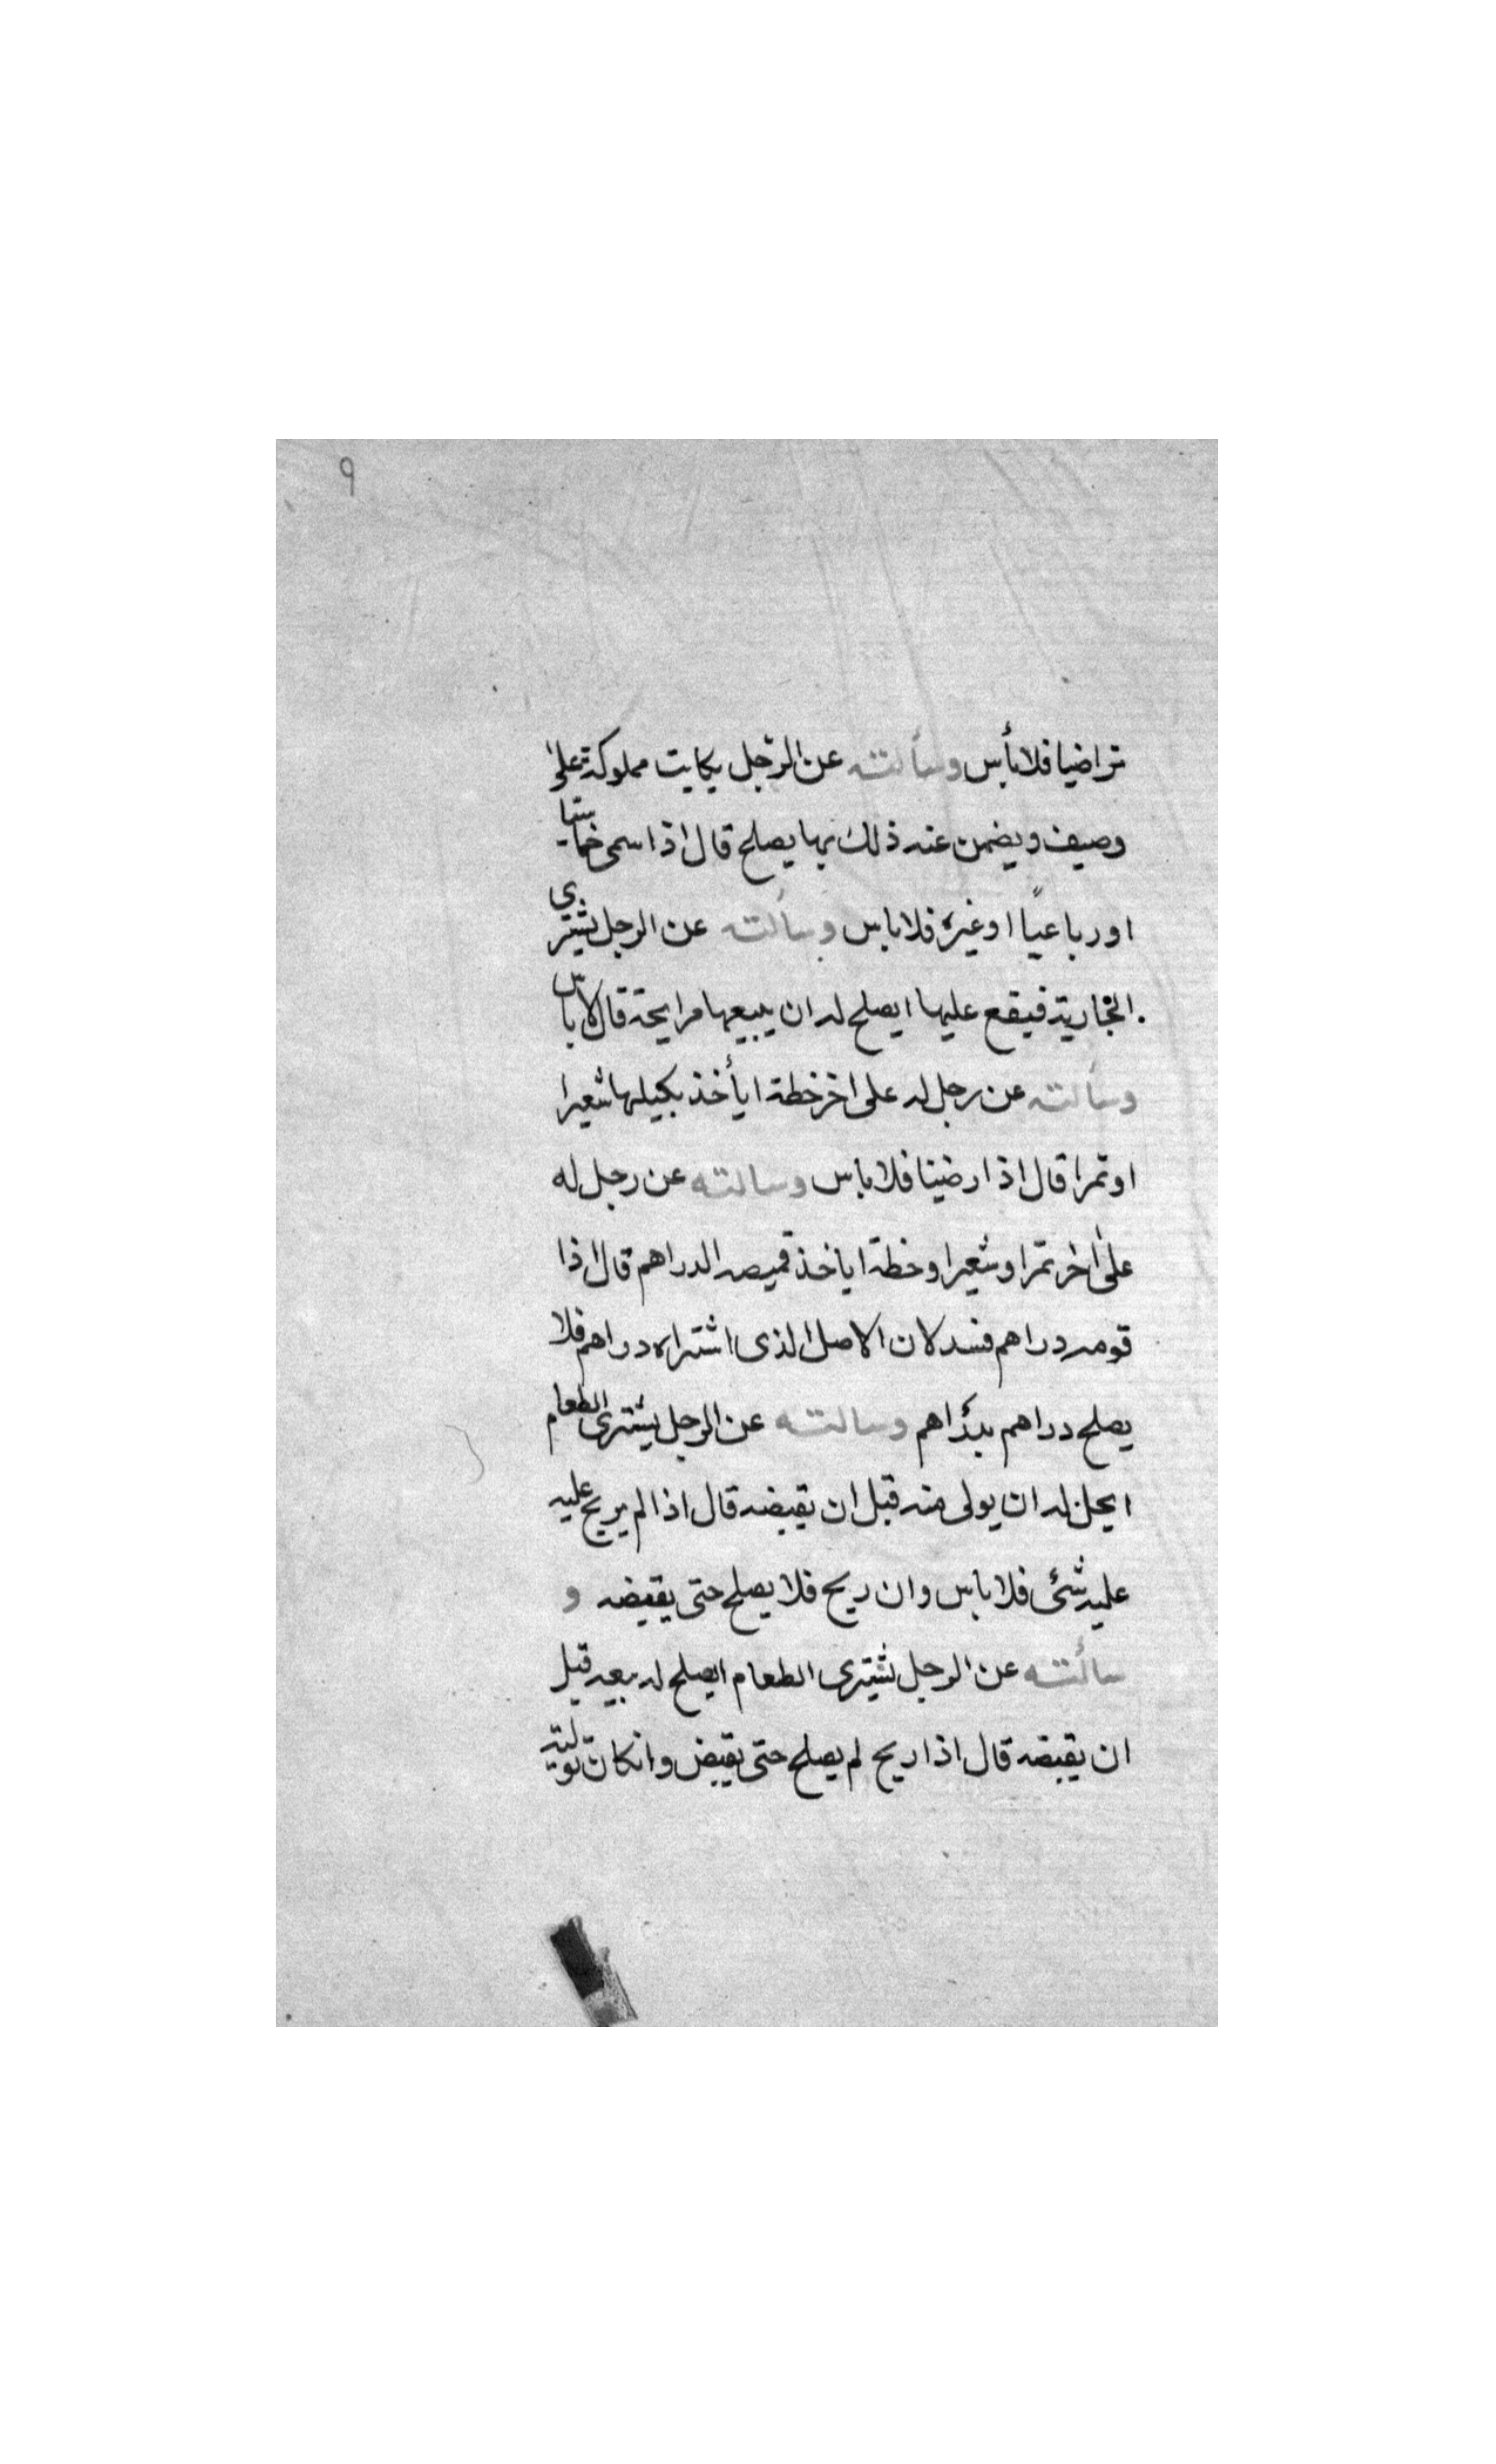 ٩
تراضيا فلا بأس وسألته عن الرجل يكايت مملوكة على
وصيف ويضمن عنه ذلك بها يصلح قال اذا سمى خماستا
او رباعيا او غيره فلا باس وسألته عن الرجل يشترى
الجارية فيقع عليها ايصلح له ان يبيعها مرابحة قال لا باس
وسألته عن رجل له على اخر خطة ايأخذ بكيلها شعيرا
او تمرا قال اذا رضينا فلا باس وسالته عن رجل له
على اخر تمرا وشعيرا وخطة اياخذ قميصه الدراهم قال اذا
قومه دراهم فسد لان الاصل الذى اشتراه دراهم فلا
يصلح دراهم بدراهم وسالته عن الرجل يشترى الطعام
ايحل له ان يولى منه قبل ان يقبضه قال اذا لم يربح عليه
عليه شئ فلا باس وان ربح فلا يصلح حتى يقبضه و
سألته عن الرجل يشترى الطعام ايصلح له بيعه قبل
ان يقبضه قال اذا ربح لم يصلح حتى يقبض وانكان توليته